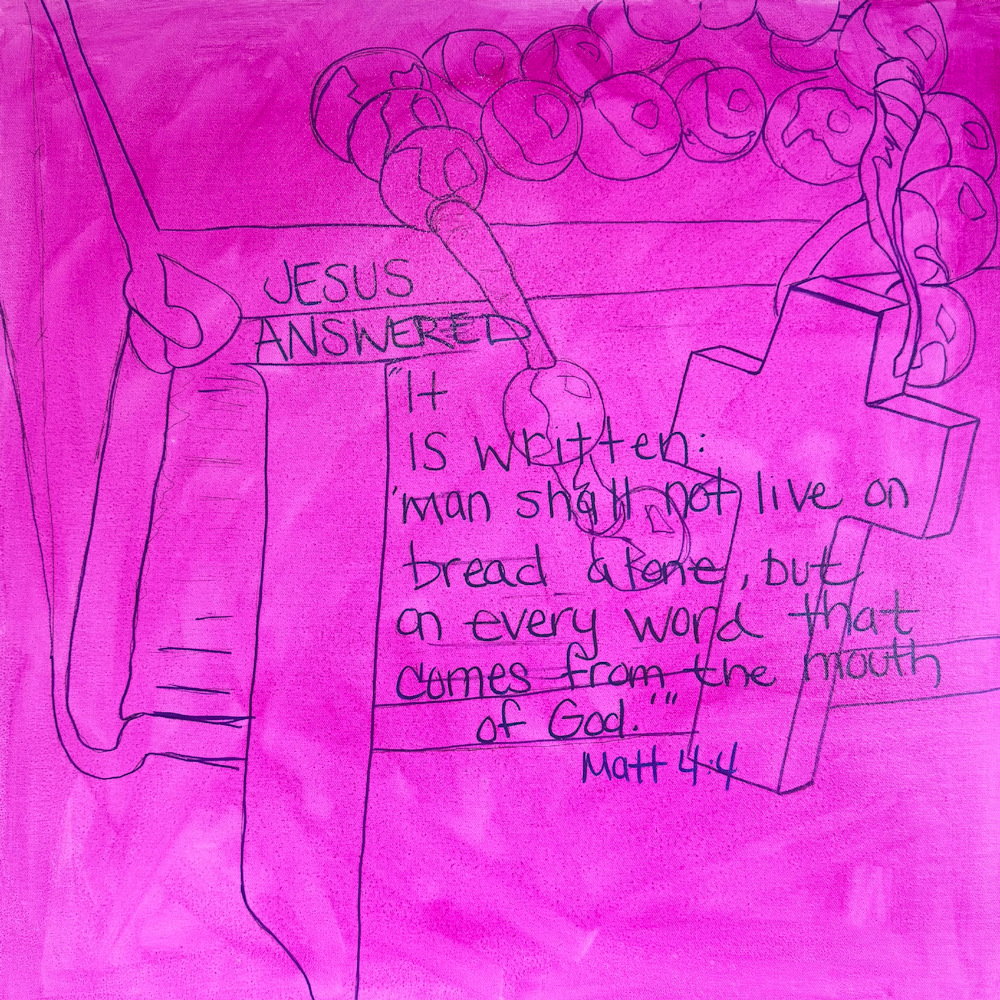 JESUS
ANSWERED
"It
IS written:
'man shall not live on
bread alone, but
on every word that
comes from the mouth
of God.'"
Matt 4:4